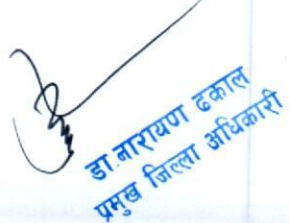 डा. नारायण ढकाल
प्रमुख जिल्ला अधिकारी